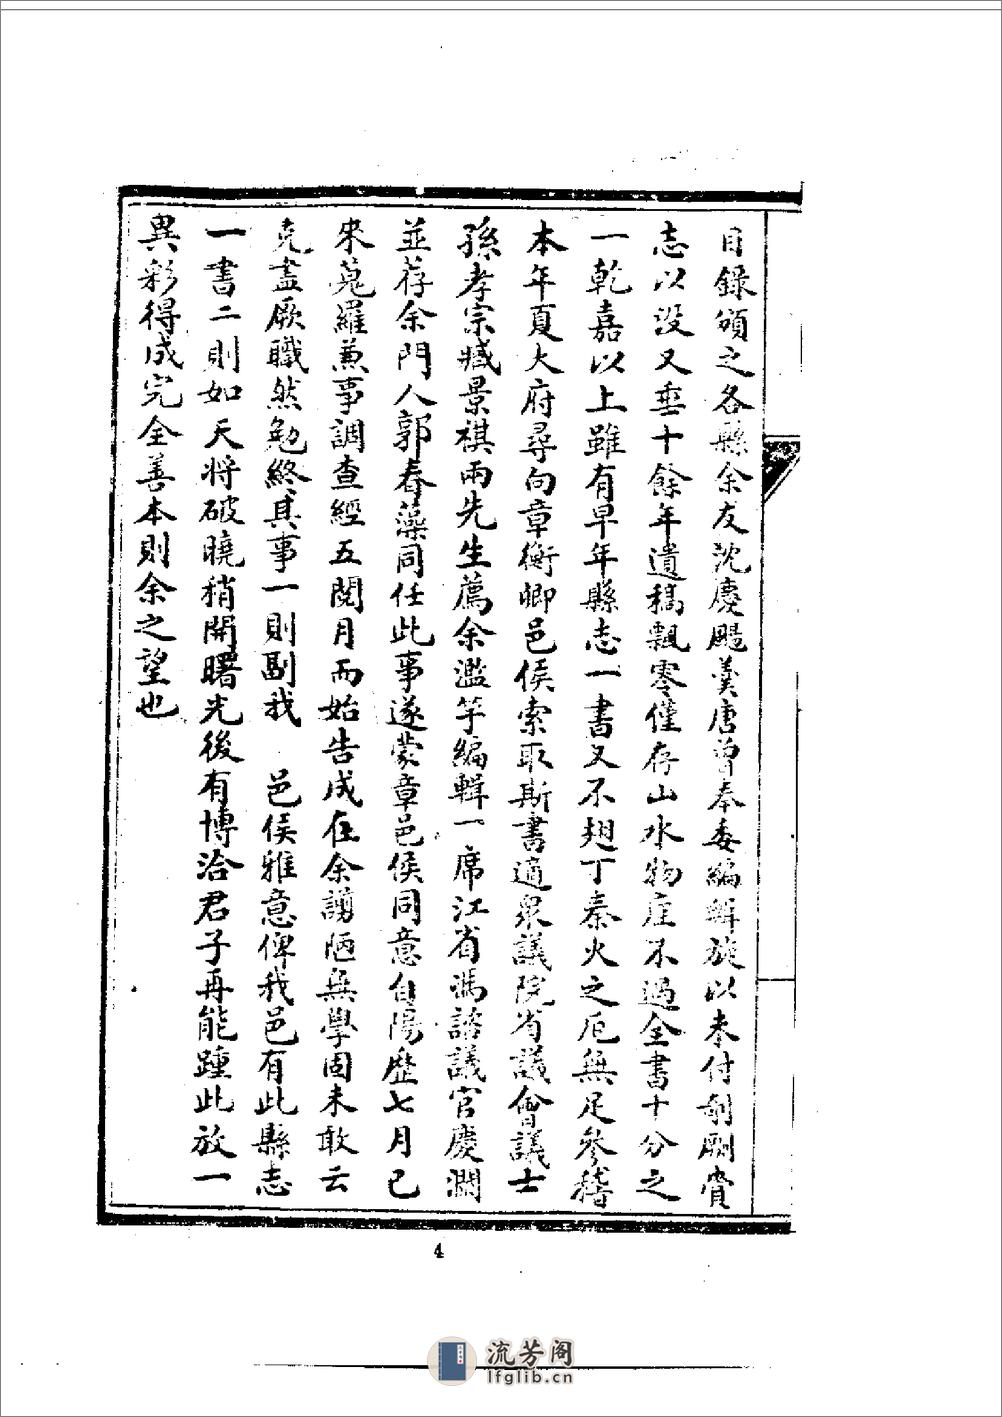 目錄頒之各縣余友沈慶颺羹唐曾奉委編輯旋以未付剞劂賫
志以沒又垂十餘年遺稿飄零僅存山水物產不過全書十分之
一乾嘉以上雖有早年縣志一書又不翅丁秦火之厄無足參稽
本年夏大府尋向章衡卿邑侯索取斯書適眾議院省議會議士
孫孝宗臧景祺兩先生薦余濫竽編輯一席江省馮諮議官慶瀾
並荐余門人郭春藻同任此事遂蒙章邑侯同意自陽歷七月已
來蒐羅兼事調查經五閱月而始告成在余謭陋無學固未敢云
克盡厥職然勉終其事一則副我 邑侯雅意俾我邑有此縣志
一書二則如天將破曉稍開曙光後有博洽君子再能踵此放一
異彩得成完全善本則余之望也
4
流芳阁
lfglib.cn